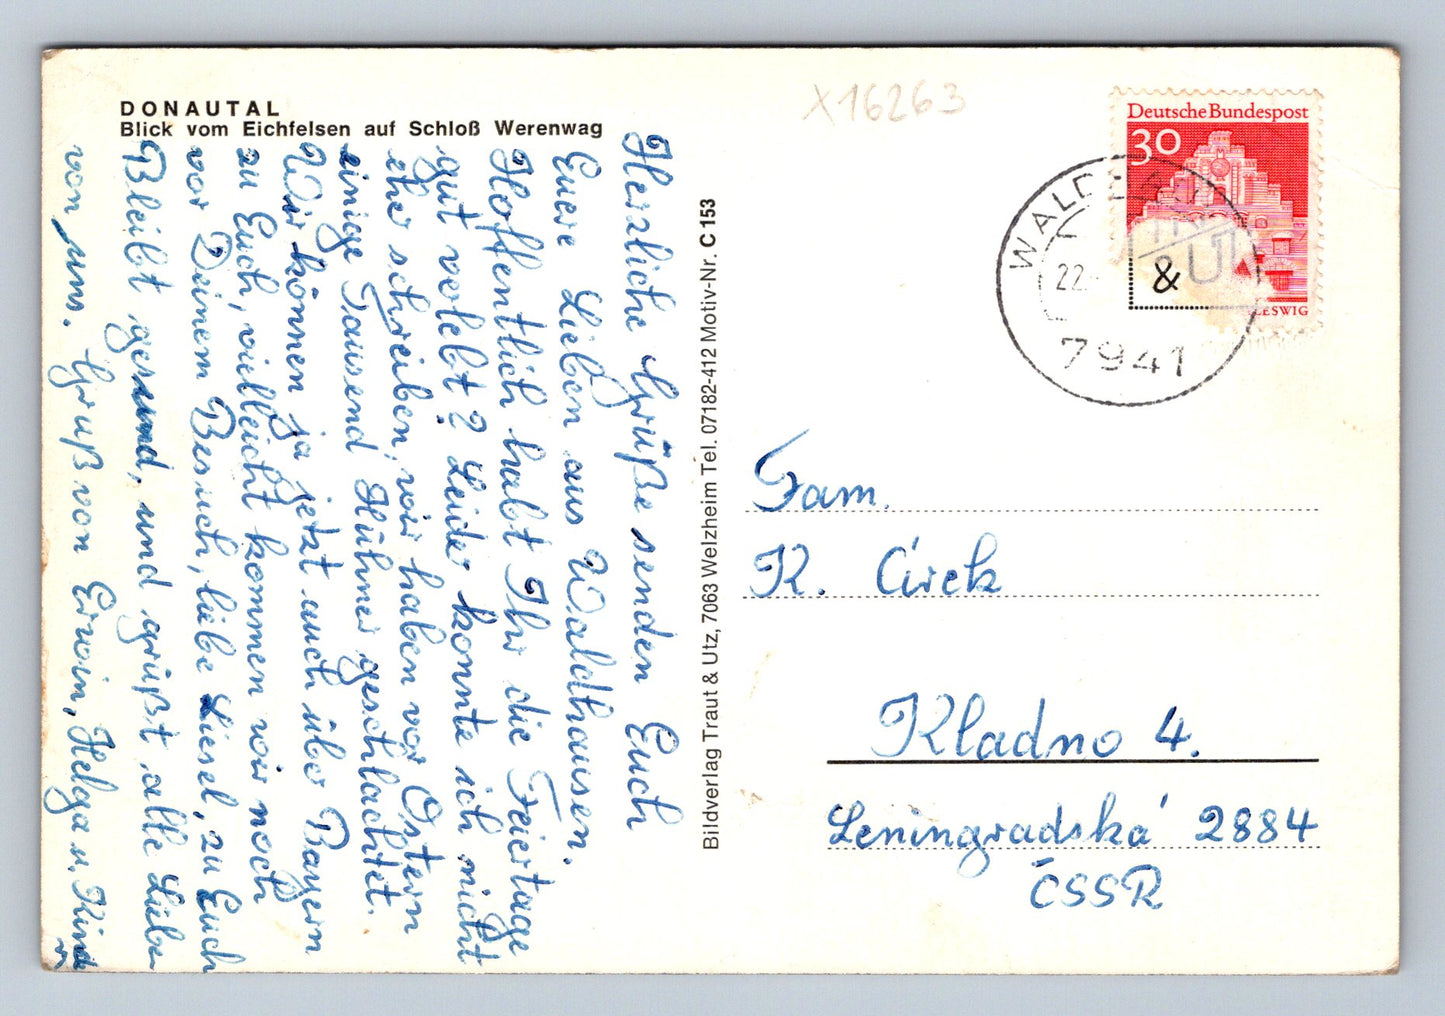 DONAUTAL
Blick vom Eichfelsen auf Schloß Werenwag
X16263
Deutsche Bundespost
30
LESWIG
WALD
22.
7941
&
Herzliche Grüße senden Euch
Euere Lieben aus Waldhausen.
Hoffentlich habt Ihr die Feiertage
gut verlebt? Leider konnte ich nicht
eher schreiben, wir haben vor Ostern
einige Tausend Hühner geschlachtet.
Wir können ja jetzt auch über Bayern
zu Euch, vielleicht kommen wir noch
vor Deinem Besuch, liebe Liesel, zu Euch
Bleibt gesund, und grüßt alle Lieben
von uns. Gruß von Erwin, Helga u. Kinder
Bildverlag Traut & Utz, 7063 Welzheim Tel. 07182-412 Motiv-Nr. C 153
Fam.
K. Cirek
Kladno 4.
Leningradská 2884
ČSSR